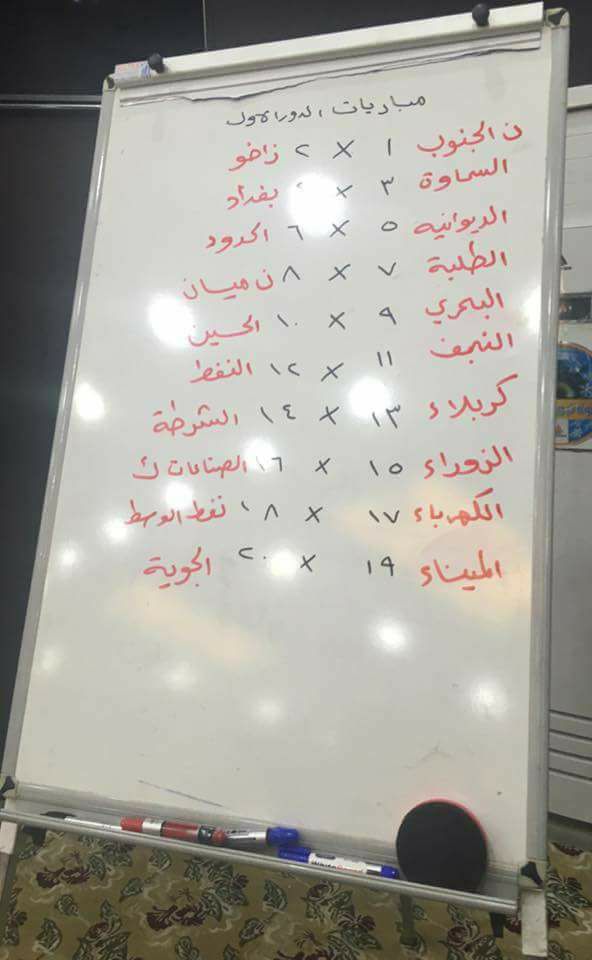 مباريات الدور الاول
ن الجنوب ١ × ٢ زاخو
السماوة ٣ × بغداد
الديوانيه ٥ × ٦ الحدود
الطلبة ٧ × ٨ ن ميسان
البحري ٩ × ١٠ الحسين
النجف ١١ × ١٢ النفط
كربلاء ١٣ × ١٤ الشرطة
الزوراء ١٥ × ١٦ الصناعات ك
الكهرباء ١٧ × ١٨ نفط الوسط
الميناء ١٩ × ٢٠ الجوية